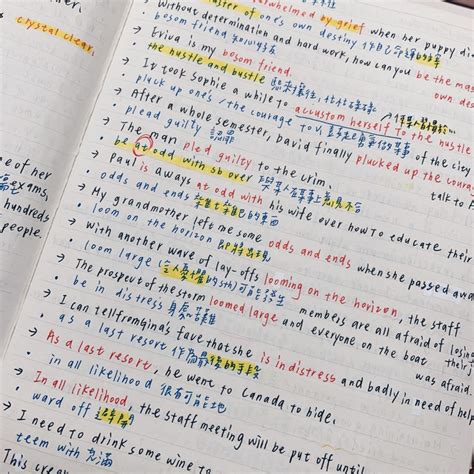 crystal clear.
e of her
exams,
hundreds
people.
master of one's own destiny
overwhelmed by grief when her puppy di
→ Without determination and hard work, how can you be the mas
own des
• bosom friend 知心好友
→ Erica is my bosom friend.
• the hustle and bustle 熙來攘往
→ It took Sophie a while to accustom herself to the hustle
of the city
• pluck up one's / the courage to V
→ After a whole semester, David finally plucked up the courage
talk to
• plead guilty 認罪
→ The man pled guilty to the crim.
• be at odd with sb over
→ Paul is aways at odd with his wife over how to educate their
• odds and ends
→ My grandmother left me some odds and ends when she passed awa
• loom on the horizon 即將出現
→ With another wave of lay-offs looming on the horizon, the staff
members are all afraid of losing
• loom large
→ The prospect of the storm loomed large and everyone on the boat
was afraid.
• be in distress
→ I can tell from Gina's face that she is in distress and badly in need of help
• as a last resort 作為最後的手段
→ As a last resort, he went to Canada to hide.
• in all likelihood 很有可能地
→ In all likelihood, the staff meeting will be put off until
• ward off
→ I need to drink some wine to
• teem with 充滿
→ This